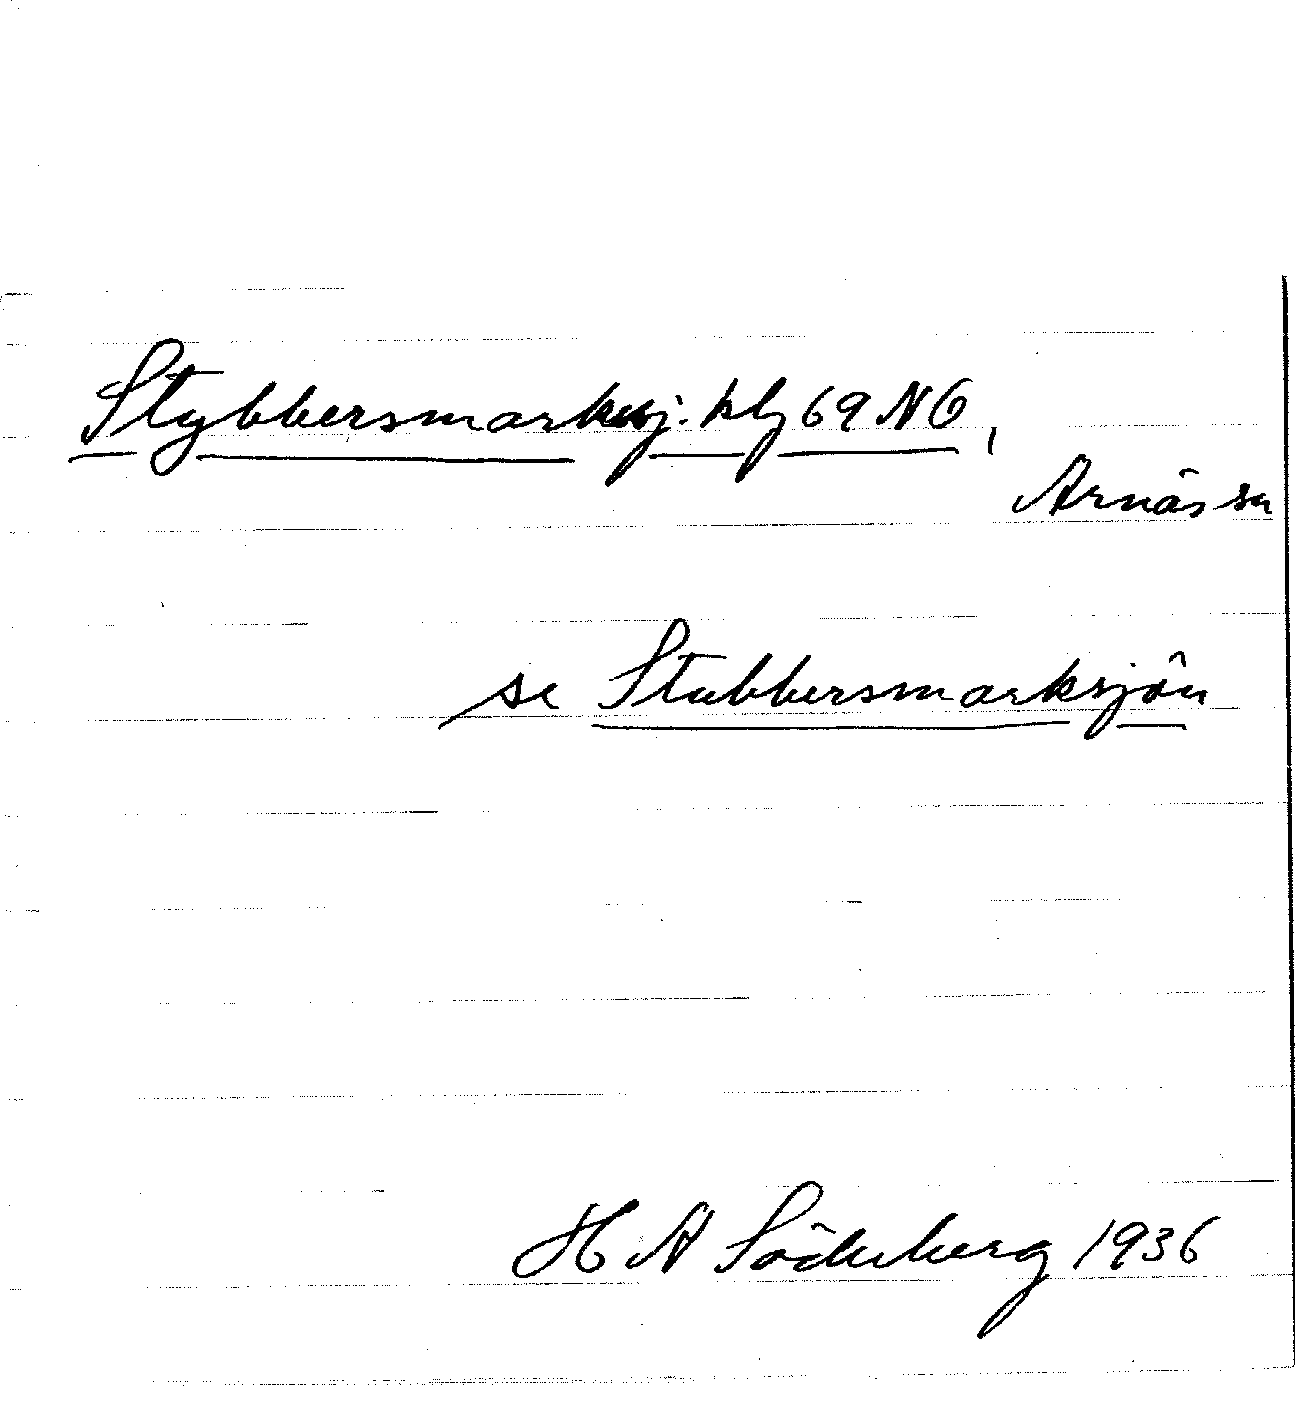 Stybbersmarksj. kbl 69 NO,
Arnäs sn
se Stubbersmarksjön
H A Söderberg 1936